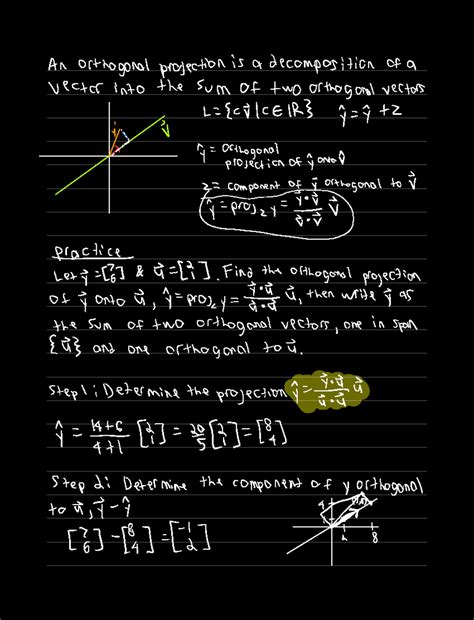 An orthogonal projection is a decomposition of a
vector into the sum of two orthogonal vectors
L={cv⃗|c∈ℝ} ŷ=ŷ+z
ŷ = orthogonal
projection of ŷ onto v̂
z = component of y⃗ orthogonal to v⃗
ŷ=proj_L y = (y⃗·v⃗)/(v⃗·v⃗) v⃗
v⃗
practice
Let y⃗=[7 6] & u⃗=[2 1]. Find the orthogonal projection
of y⃗ onto u⃗, ŷ=proj_L y = (y⃗·u⃗)/(u⃗·u⃗) u⃗, then write y⃗ as
the sum of two orthogonal vectors, one in span
{u⃗} and one orthogonal to u⃗.
Step 1: Determine the projection ŷ = (y⃗·u⃗)/(u⃗·u⃗) u⃗
ŷ = (14+6)/(4+1) [2 1] = 20/5 [2 1] = [8 4]
Step 2: Determine the component of y orthogonal
to u⃗, y⃗-ŷ
[7 6]-[8 4]=[-1 2]
2 8